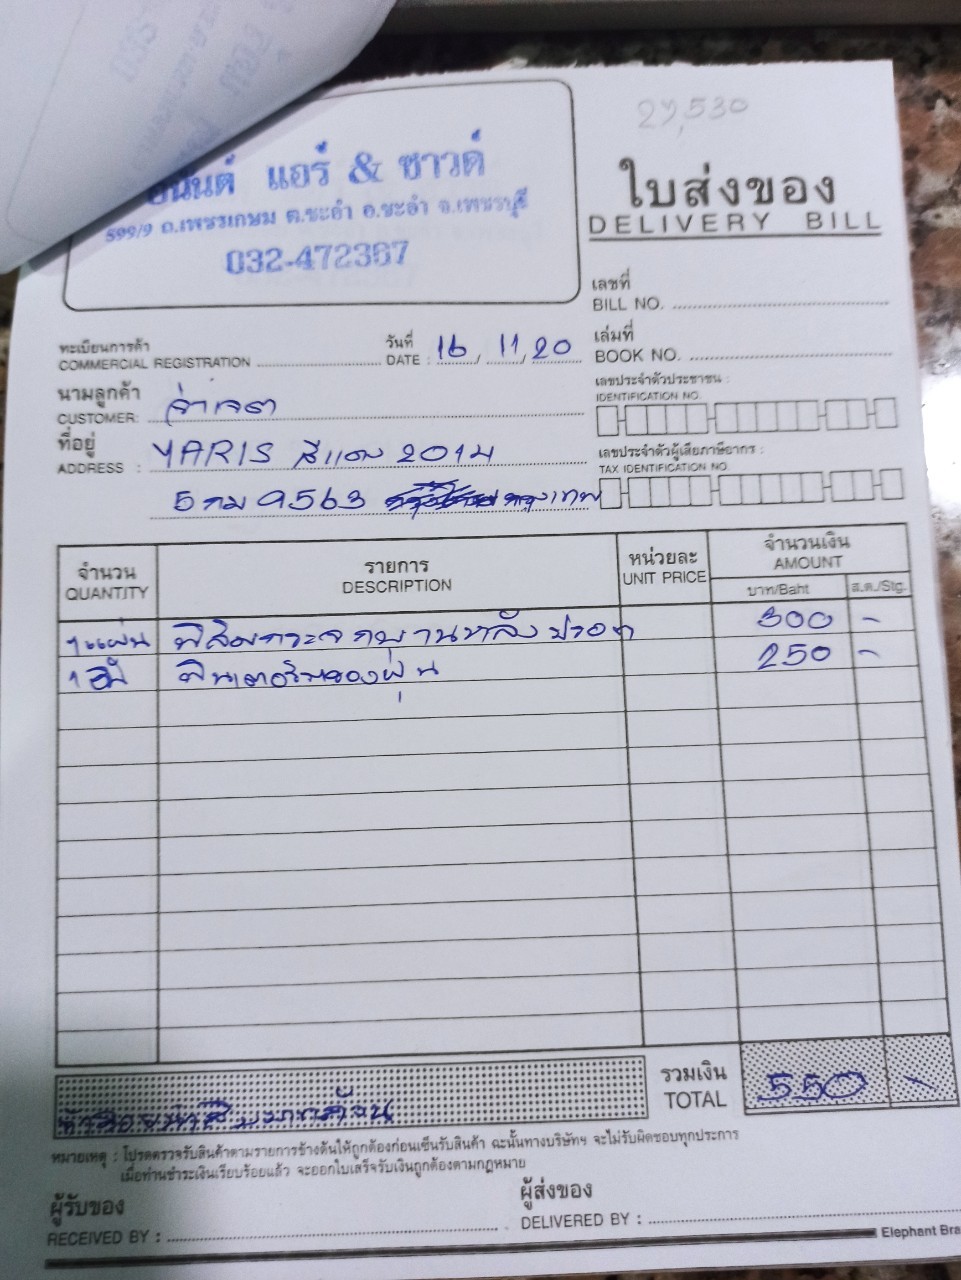 27,530
แอร์ & ซาวด์
599/9 ถ.เพชรเกษม ต.ชะอำ อ.ชะอำ จ.เพชรบุรี
032-472367
ใบส่งของ
DELIVERY BILL
เลขที่
BILL NO.
ทะเบียนการค้า
COMMERCIAL REGISTRATION
วันที่
DATE : 16 / 11 / 20
เล่มที่
BOOK NO.
นามลูกค้า
CUSTOMER: จ่าเจต
เลขประจำตัวประชาชน :
IDENTIFICATION NO.
ที่อยู่
ADDRESS : YARIS สีแดง 2014
เลขประจำตัวผู้เสียภาษีอากร :
TAX IDENTIFICATION NO.
5กม 9563 กรุงเทพ
จำนวน
QUANTITY
รายการ
DESCRIPTION
หน่วยละ
UNIT PRICE
จำนวนเงิน
AMOUNT
บาท/Baht
ส.ต./Stg.
1 แผ่น ฟิล์มกระจกบานหลัง 300 -
1 250 -
รวมเงิน
TOTAL 550 -
ห้าร้อยห้าสิบบาทถ้วน
หมายเหตุ : โปรดตรวจรับสินค้าตามรายการข้างต้นให้ถูกต้องก่อนเซ็นรับสินค้า ฉะนั้นทางบริษัทฯ จะไม่รับผิดชอบทุกประการ
เมื่อท่านชำระเงินเรียบร้อยแล้ว จะออกใบเสร็จรับเงินถูกต้องตามกฎหมาย
ผู้รับของ
RECEIVED BY :
ผู้ส่งของ
DELIVERED BY :
Elephant Bra